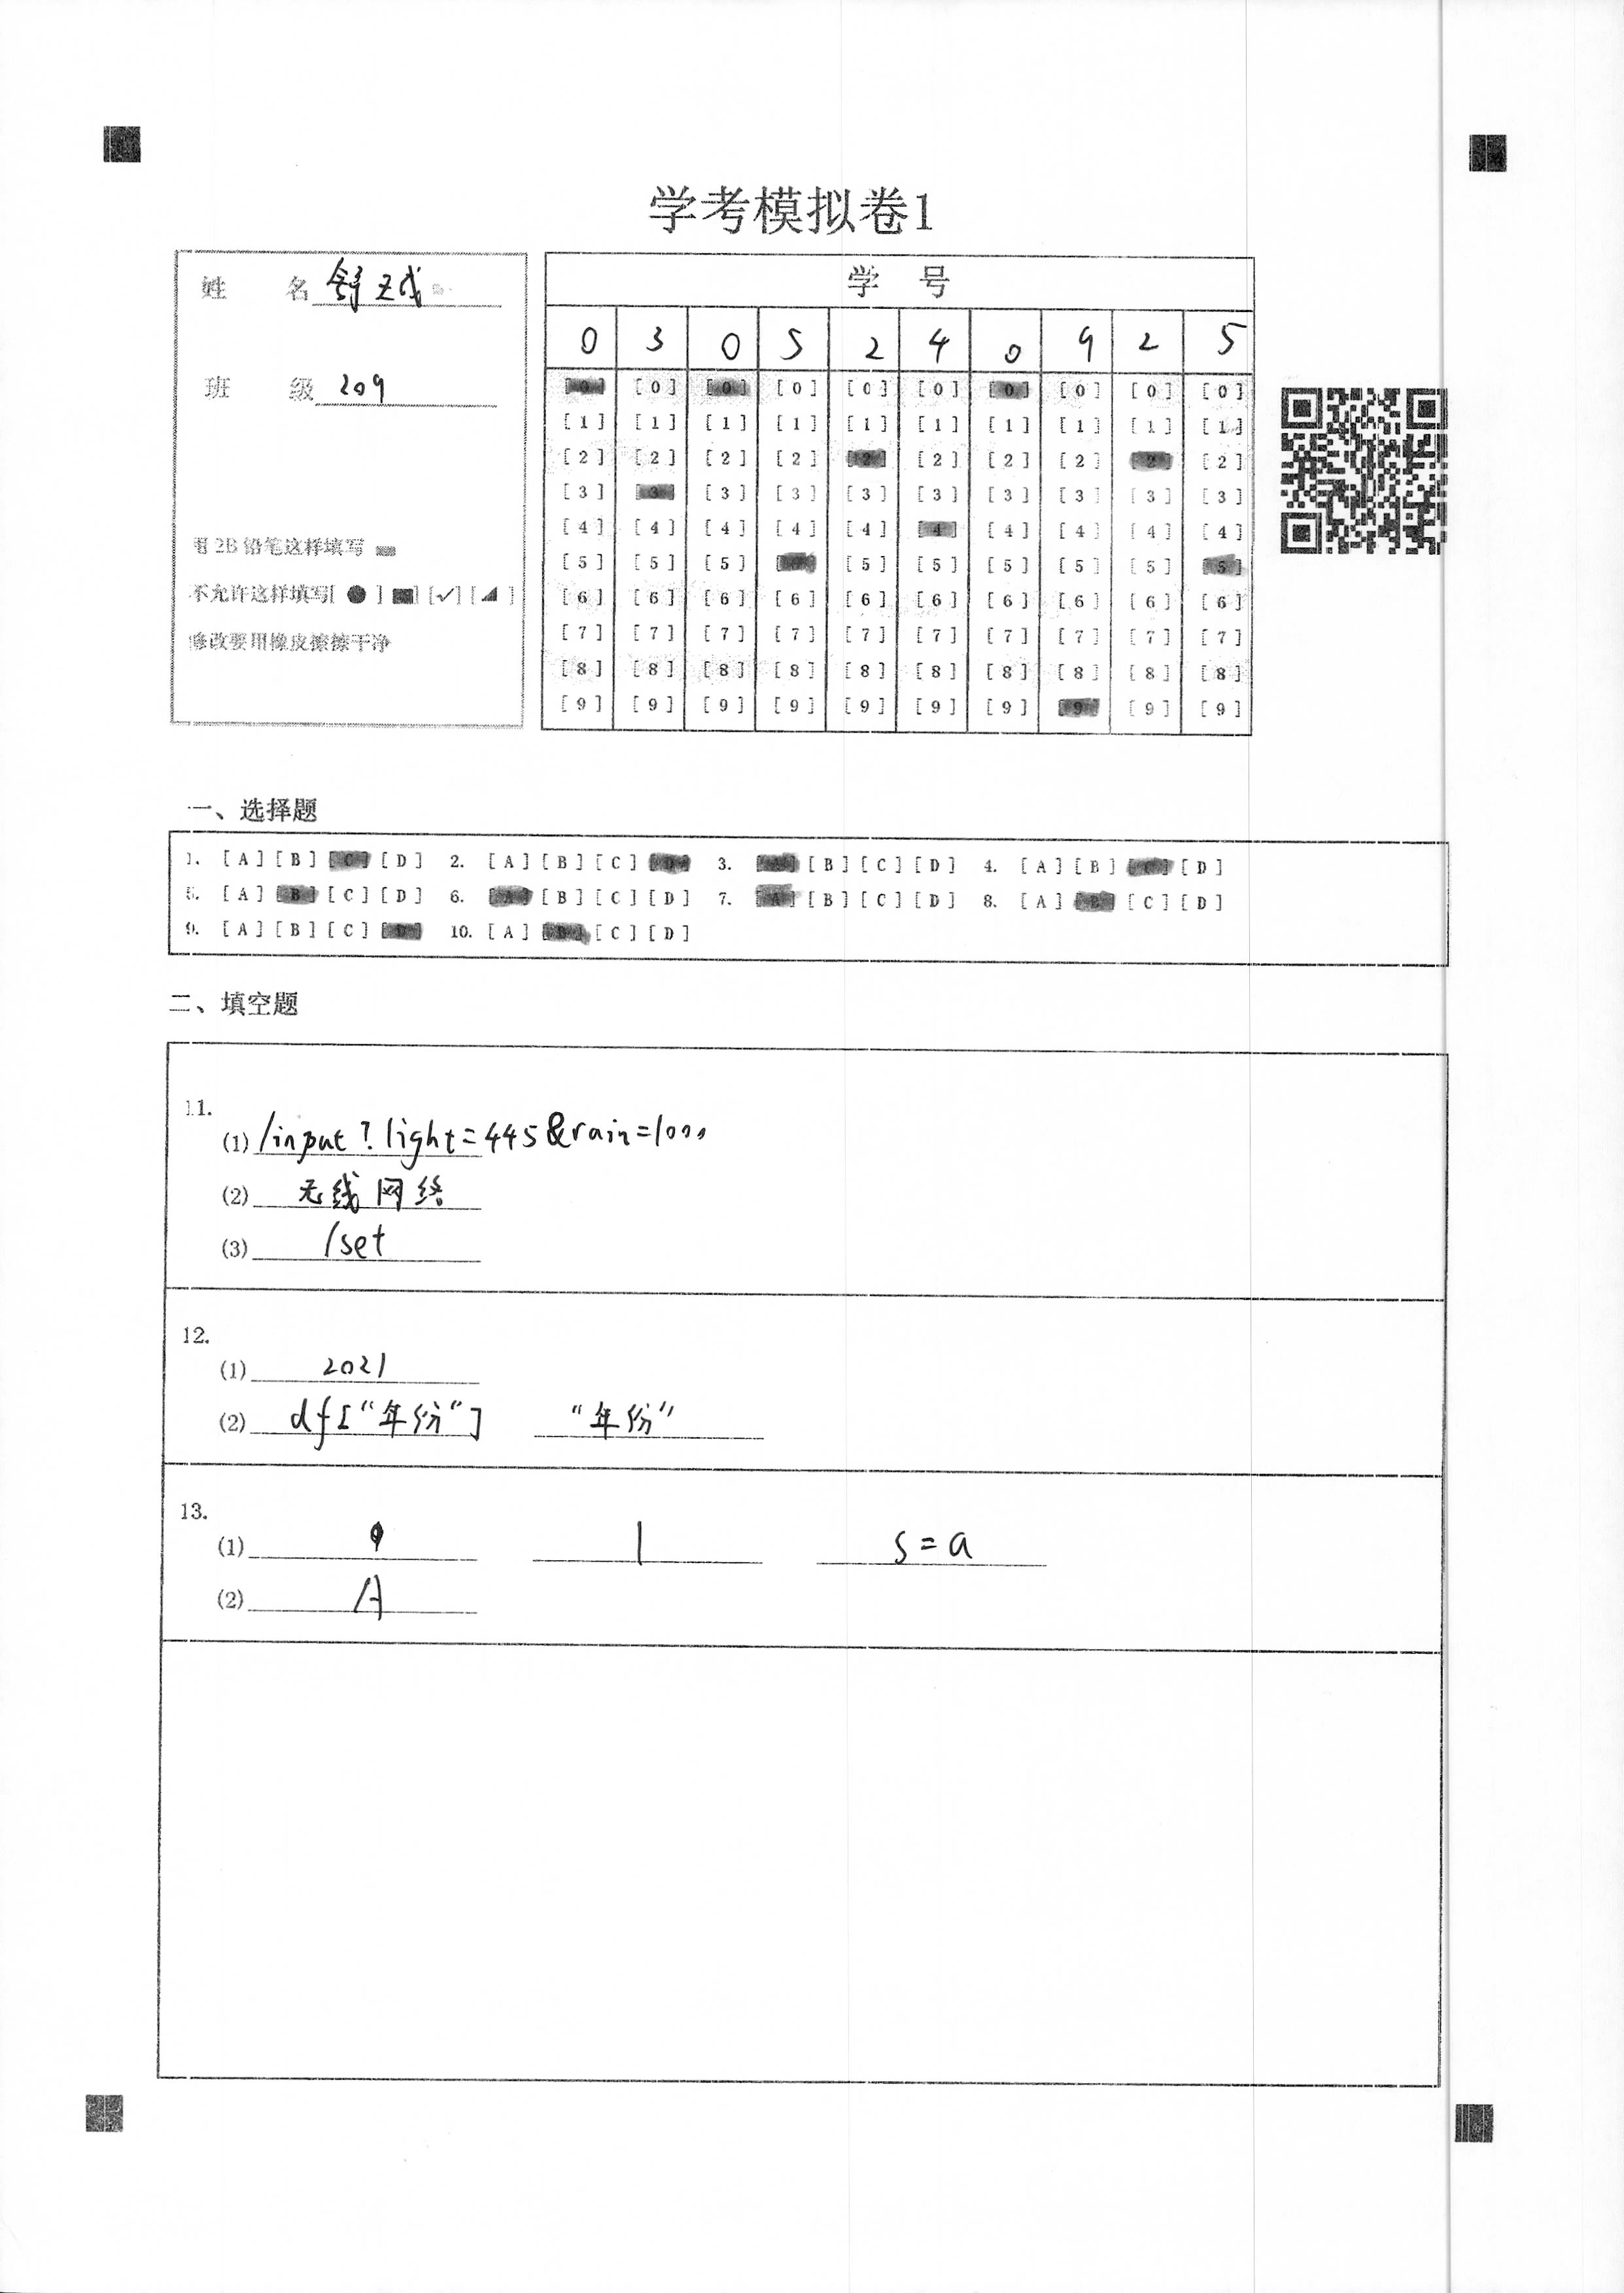 学考模拟卷1
姓 名 舒
班 级 209
用 2B 铅笔这样填写
不允许这样填写[ ● ] [■] [✓] [◢ ]
修改要用橡皮擦擦干净
学 号
0 3 0 5 2 4 0 9 2 5
[0] [0] [0] [0] [0] [0] [0] [0] [0] [0]
[1] [1] [1] [1] [1] [1] [1] [1] [1] [1]
[2] [2] [2] [2] [2] [2] [2] [2] [2] [2]
[3] [3] [3] [3] [3] [3] [3] [3] [3] [3]
[4] [4] [4] [4] [4] [4] [4] [4] [4] [4]
[5] [5] [5] [5] [5] [5] [5] [5] [5] [5]
[6] [6] [6] [6] [6] [6] [6] [6] [6] [6]
[7] [7] [7] [7] [7] [7] [7] [7] [7] [7]
[8] [8] [8] [8] [8] [8] [8] [8] [8] [8]
[9] [9] [9] [9] [9] [9] [9] [9] [9] [9]
一、选择题
1. [A] [B] [C] [D] 2. [A] [B] [C] [D] 3. [A] [B] [C] [D] 4. [A] [B] [C] [D]
5. [A] [B] [C] [D] 6. [A] [B] [C] [D] 7. [A] [B] [C] [D] 8. [A] [B] [C] [D]
9. [A] [B] [C] [D] 10. [A] [B] [C] [D]
二、填空题
11.
(1) /input?light=445&rain=1000
(2) 无线网络
(3) /set
12.
(1) 2021
(2) df["年份"] "年份"
13.
(1) 1 s=a
(2) A